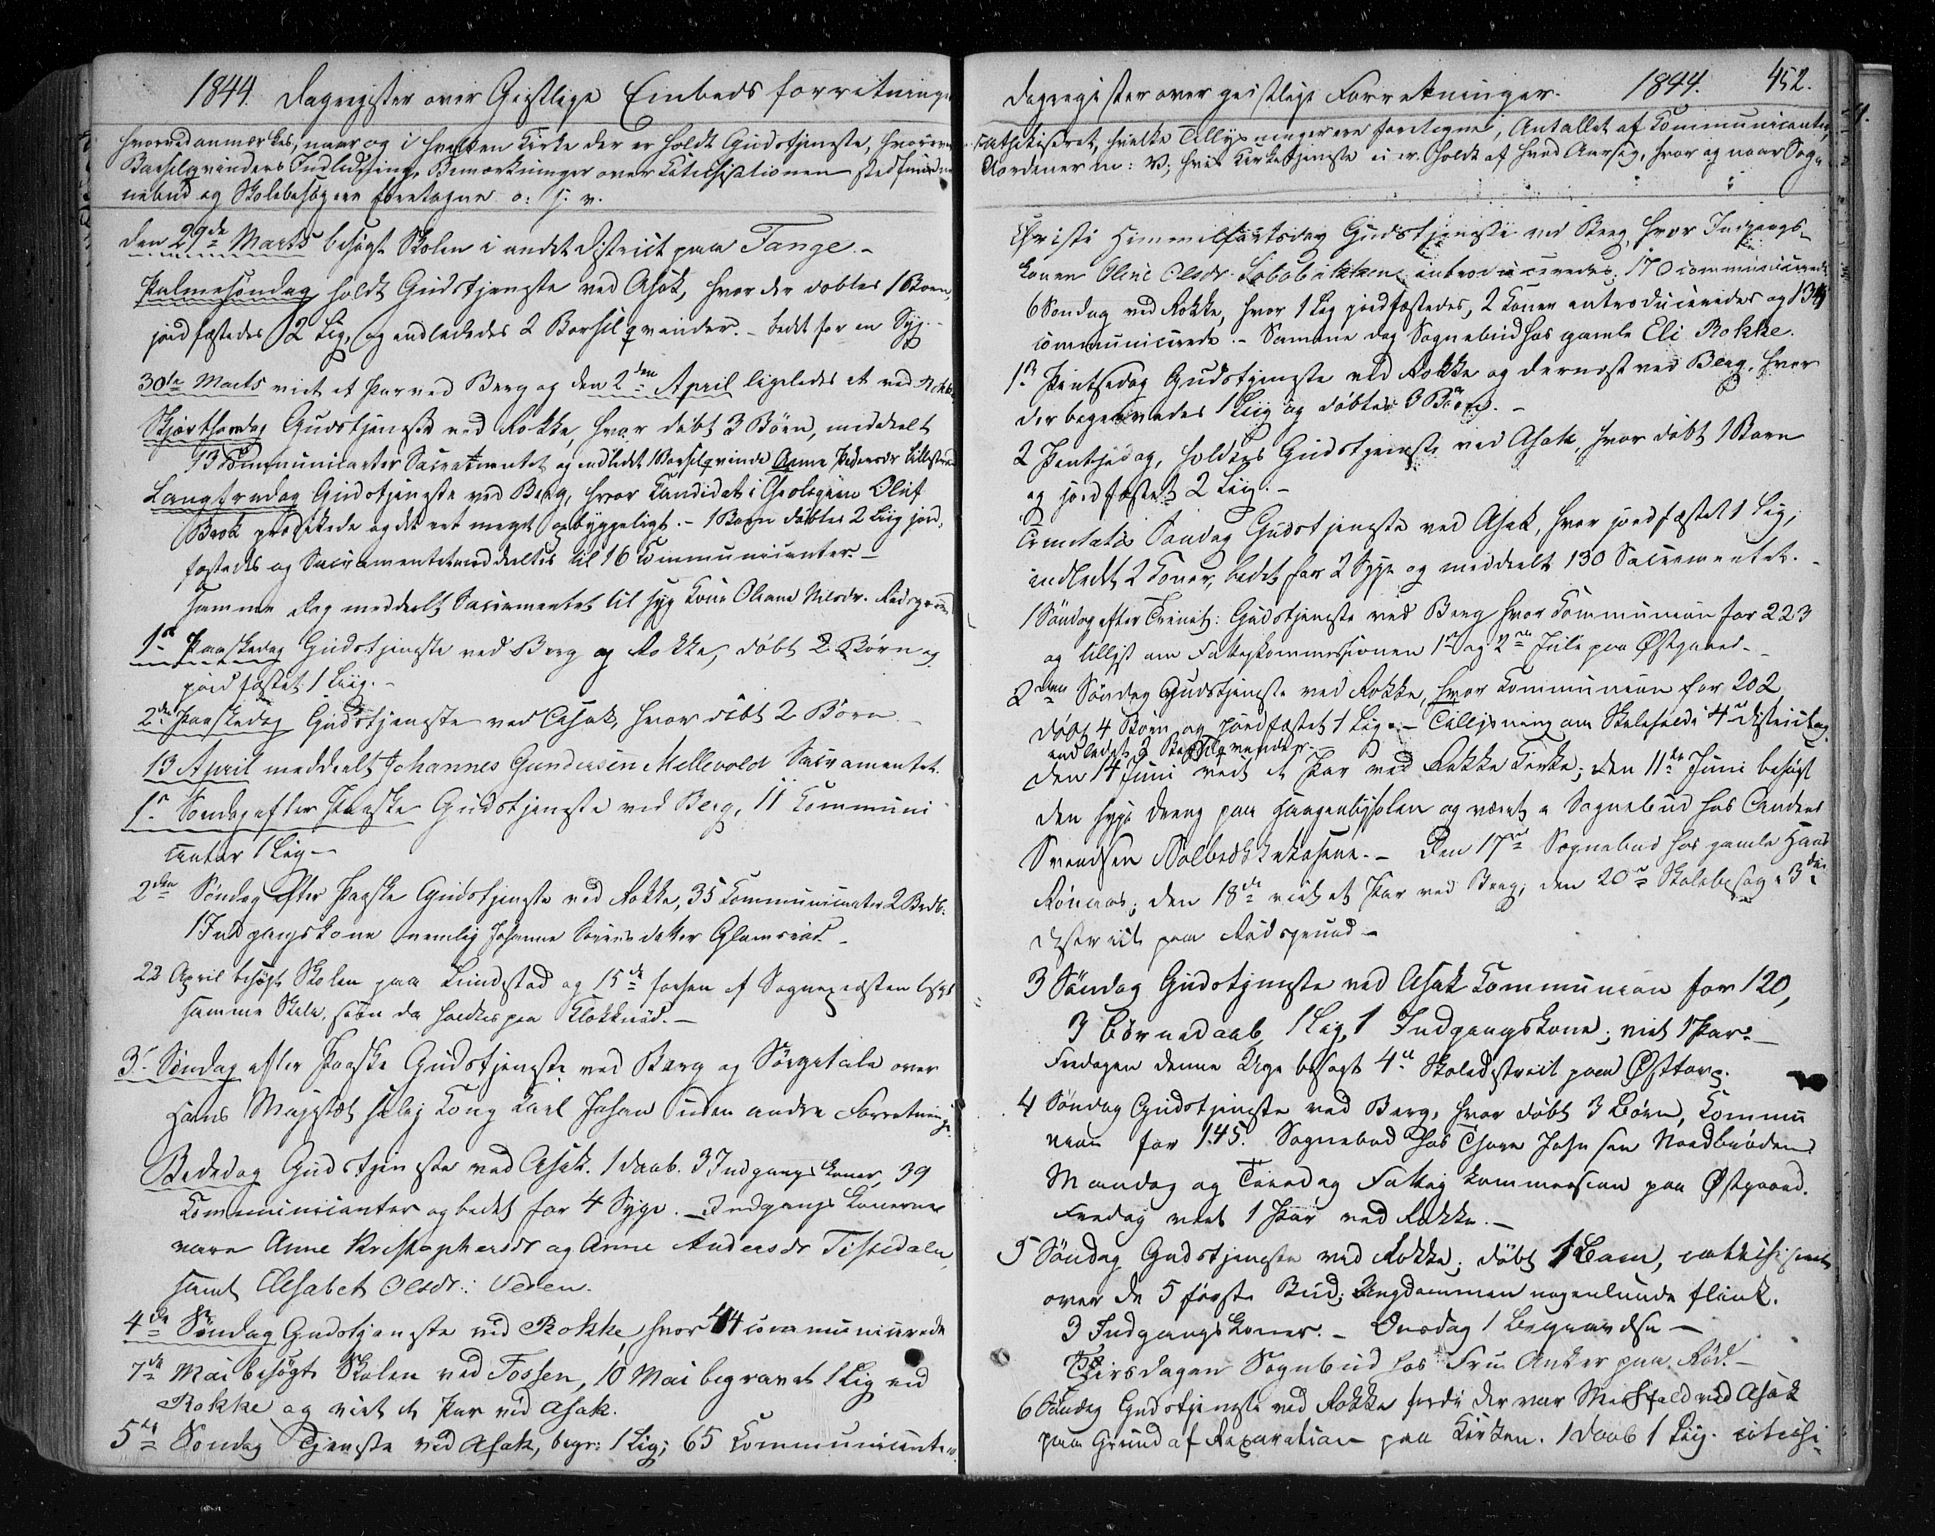 1844. Dagregister over Geistlige Embedsforretninger
hvorved anmærkes, naar og i hvilken Kirke der er holdt Gudstjeneste,
Barselqvinders Indledning, Bemærkninger over Catechisationen
nebud og Skolebesøg ere foretagne o: s: v.
den 29de Marts besøgt Skolen i andet District paa Tange.-
Palmesøndag holdt Gudstjeneste ved Asak, hvor der døbtes 1 Barn,
jordfæstedes 2 Lig, og indlededes 2 Barselqvinder. - bedet for en Syg.-
30te Marts viet et Par ved Berg og den 2den April ligeledes et ved Rokke
Skjærthorsdag Gudstjeneste ved Rokke, hvor døbt 3 Børn, meddeelt
13 Communicanter Sacramentet og indledt 1 Barselqvinde Anne Pedersdr
Langfredag Gudstjeneste ved Berg, hvor Candidat i Theologien Oluf
prædikede og det ret meget opbyggeligt. - 1 Barn døbtes 2 Liig jord-
fæstedes og Sacramentet meddeeltes til 16 Communicanter -
Samme Dag meddeelt Sacramentet til syg Kone Oleane Nilsdr.
1ste Paaskedag Gudstjeneste ved Berg og Rokke, døbt 2 Børn og
jordfæstet 1 Liig. -
2den Paaskedag Gudstjeneste ved Asak, hvor døbt 2 Børn -
13 April meddeelt Johannes Gundersen Mellevold Sacramentet.
1ste Søndag efter Paaske Gudstjeneste ved Berg, 11 Communi
canter 1 Lig -
2den Søndag efter Paaske Gudstjeneste ved Rokke, 35 Communicanter
1 Indgangskone nemlig Johanne
22 April besøgt Skolen paa Lundestad og 15de forhen af Sognepræsten
samme Skole, som da holdtes paa Klokkerød. -
3die Søndag efter Paaske Gudstjeneste ved Berg og Sørgetale over
Hans Majestæt salig Kong Karl Johan uden andre Forretninger
Bededag Gudstjeneste ved Asak. 1 daab. 3 Indgangskoner, 39
Communicanter og bedet for 4 Syge. - Indgangskonerne
vare Anne Kristophersdr og Anne Andersdr Tistedalen,
samt Elisabet Olsdr: Veden.
4de Søndag Gudstjeneste ved Rokke, hvor 44 communicerede
7de Mai besøgt Skolen ved Fossen, 10 Mai begravet 1 Lig ved
Rokke og viet et Par ved Asak.
5te Søndag Tjeneste ved Asak, begr: 1 Lig; 65 Communicanter
Dagregister over geistlige Forretninger. 1844. 452.
catechiseret, hvilke Tillysninger ere foretagne, Antallet af Communicanter,
hvis Kirketjeneste ei er holdt af hvad Aarsag, hvor og naar Sog-
Christi Himmelfartsdag Gudstjeneste ved Berg, hvor Indgangs-
konen Oline Olsdr introduceredes; 170 communicerede
6 Søndag ved Rokke, hvor 1 Lig jordfæstedes, 2 Koner introduceredes og
communicerede. - Samme dag Sognebud hos gamle Eli Rokke.
1ste Pintsedag Gudstjeneste ved Rokke og dernæst ved Berg, hvor
der begravedes 1 Liig og døbtes 3 Børn. -
2 Pintsedag, holdtes Gudstjeneste ved Asak, hvor døbt 1 Barn
og jordfæstet 2 Liig. -
Trinitatis Søndag Gudstjeneste ved Asak, hvor jordfæstet 1 Lig,
indledt 2 Koner, bedet for 2 Syge og meddeelt 130 Sacramentet. -
1 Søndag efter Trinit: Gudstjeneste ved Berg hvor Communion for 223
og tillyst om Fattigkommissionen 1ste og 2den Julii paa Østgaard. -
2den Søndag Gudstjeneste ved Rokke, hvor Communion for 202
døbt 4 Børn og jordfæstet 1 Lig. - Tillysning om Skolehold i 4de District og
indledet 3 Barselqvinder.
Den 14 Juni viet et Par ved Rokke Kirke; den 11te Juni besøgt
den syge dreng paa og været i Sognebud hos Anders
Svendsen - Den 17de Sognebud hos gamle Hans
Rønaas; den 18de viet et Par ved Berg; den 20de Skolebesøg i 3die
District paa Rødsgrund -
3 Søndag Gudstjeneste ved Asak Communion for 120,
3 Børnedaab, 1 Lig, 1 Indgangskone; viet 1 Par. -
Fredagen denne Uge besøgt 4de Skoledistrict paa Østtorp.
4 Søndag Gudstjeneste ved Berg, hvor døbt 3 Børn, Commu
nion for 145. Sognebud hos Thore Johnsen
Mandag og Tirsdag Fattigkommission paa Østgaard.
Fredag viet 1 Par ved Rokke. -
5 Søndag Gudstjeneste ved Rokke; døbt 1 Barn, catechiseret
over de 5 første Bud; Ungdommen nogenlunde flink.
3 Indgangskoner. - Onsdag 1 Begravelse -
Tirsdagen Sognebud hos Fru Anker paa Rød. -
6 Søndag Gudstjeneste ved Rokke fordi der var Messefald ved Asak
paa Grund af Reparation paa Kirken. 1 daab 1 Liig. catechi-